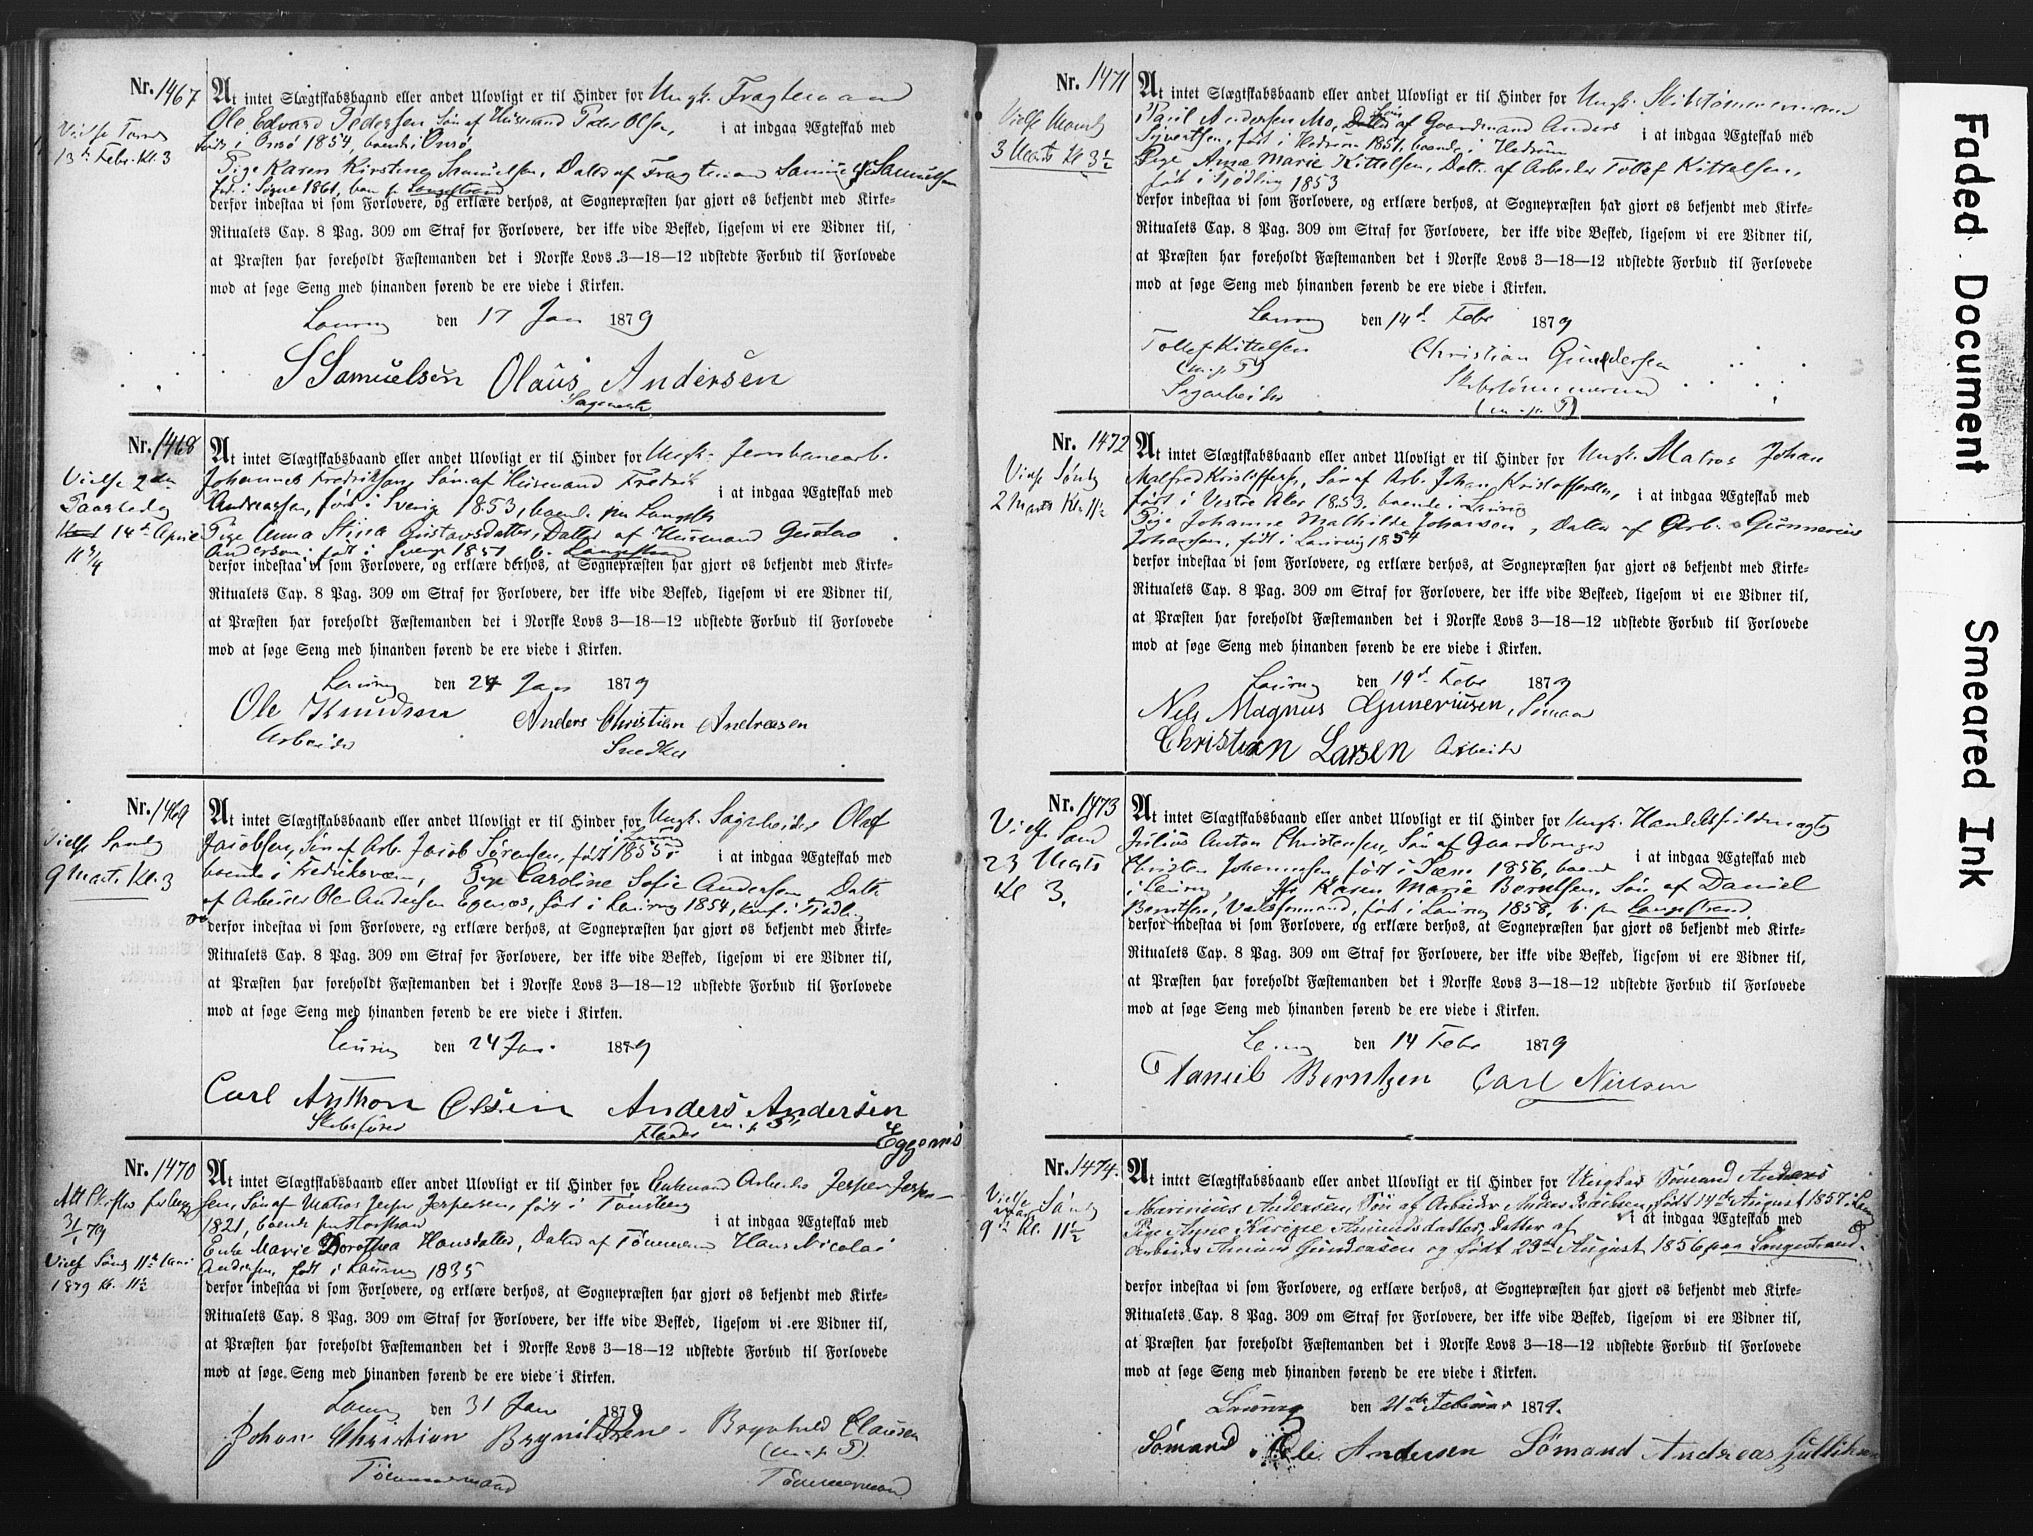 Nr. 1467
At intet Slægtskabsbaand eller andet Ulovligt er til Hinder for Ungk. Fragtemand
Ole Edvard Pedersen Søn af Husmand Peder Olsen, i at indgaa Ægteskab med
født i Onsø 1854, boende i Onsø
Vielse
13de Febr. Kl. 3
Pige Karen Kirstine Samuelsen, Datter af Fragtemand Samuel Samuelsen
født i Sogne 1861, boe p. Langestrand
derfor indestaa vi som Forlovere, og erklære derhos, at Sognepræsten har gjort os bekjendt med Kirke-
Ritualets Cap. 8 Pag. 309 om Straf for Forlovere, der ikke vide Besked, ligesom vi ere Vidner til,
at Præsten har foreholdt Fæstemanden det i Norske Lovs 3—18—12 udstedte Forbud til Forlovede
mod at søge Seng med hinanden førend de ere viede i Kirken.
Laurvig den 17 Jan 1879
S Samuelsen Olaus Andersen
Nr. 1468
At intet Slægtskabsbaand eller andet Ulovligt er til Hinder for Ungk. Jernbanearb.
Johannes Fredriksen, Søn af Husmand Fredrik
Andreassen, født i Sverige 1853, boende paa Langestr. i at indgaa Ægteskab med
Vielse 2den
Paaskedag
14de April
11 3/4
Pige Anna Stina Gustavsdatter, Datter af Husmand Gustav
Anderson, født i Sverge 1851, b. Langestrand
derfor indestaa vi som Forlovere, og erklære derhos, at Sognepræsten har gjort os bekjendt med Kirke-
Ritualets Cap. 8 Pag. 309 om Straf for Forlovere, der ikke vide Besked, ligesom vi ere Vidner til,
at Præsten har foreholdt Fæstemanden det i Norske Lovs 3—18—12 udstedte Forbud til Forlovede
mod at søge Seng med hinanden førend de ere viede i Kirken.
Laurvig den 24 Jan 1879
Ole Knudsen Anders Christian Andreasen
Arbeider Snedker
Nr. 1469
At intet Slægtskabsbaand eller andet Ulovligt er til Hinder for Ungk. Sagarbeider Olaf
Jacobsen, Søn af Arb. Jacob Sørensen, født i Laurvig 1855, i at indgaa Ægteskab med
Vielse Søndg
9 Marts Kl. 3
boende i Fredriksværn, Pige Caroline Sofie Andersen, Datter
af Arbeider Ole Andersen Egenæs, født i Laurvig 1854, konf. i Tjødling
derfor indestaa vi som Forlovere, og erklære derhos, at Sognepræsten har gjort os bekjendt med Kirke-
Ritualets Cap. 8 Pag. 309 om Straf for Forlovere, der ikke vide Besked, ligesom vi ere Vidner til,
at Præsten har foreholdt Fæstemanden det i Norske Lovs 3—18—12 udstedte Forbud til Forlovede
mod at søge Seng med hinanden førend de ere viede i Kirken.
Laurvig den 24 Jan. 1879
Carl Anthon Olsen Anders Andersen
Skibsfører m. p. P. Eggenæs
Nr. 1470
At intet Slægtskabsbaand eller andet Ulovligt er til Hinder for Enkemand Arbeider Jesper Jesper-
sen, Søn af Matros Jesper Jespersen, født i Tønsberg
1821, boende paa Torstrand i at indgaa Ægteskab med
Att Skifter
31/1 79
Vielse Søndg
1879 Kl. 11½
Enke Marie Dorothea Hansdatter, Datter af Tømmerm. Hans Nicolai
Andersen, født i Laurvig 1835
derfor indestaa vi som Forlovere, og erklære derhos, at Sognepræsten har gjort os bekjendt med Kirke-
Ritualets Cap. 8 Pag. 309 om Straf for Forlovere, der ikke vide Besked, ligesom vi ere Vidner til,
at Præsten har foreholdt Fæstemanden det i Norske Lovs 3—18—12 udstedte Forbud til Forlovede
mod at søge Seng med hinanden førend de ere viede i Kirken.
Laurvig den 31 Jan 1879
Johan Christian Brynildsen Brynhild Clausen
(m. p. P.)
Tømmermand Tømmermand
Nr. 1471
At intet Slægtskabsbaand eller andet Ulovligt er til Hinder for Ungk. Skibstømmermand
Paul Andersen Mo, Søn af Gaardmand Anders
Syvertsen, født i Hedrum 1851, boende i Hedrum i at indgaa Ægteskab med
Vielse Mandg
3 Marts Kl 3½
Pige Anne Marie Kittelsen, Dattr. af Arbeider Tollef Kittelsen,
født i Tjødling 1853
derfor indestaa vi som Forlovere, og erklære derhos, at Sognepræsten har gjort os bekjendt med Kirke-
Ritualets Cap. 8 Pag. 309 om Straf for Forlovere, der ikke vide Besked, ligesom vi ere Vidner til,
at Præsten har foreholdt Fæstemanden det i Norske Lovs 3—18—12 udstedte Forbud til Forlovede
mod at søge Seng med hinanden førend de ere viede i Kirken.
Laurvig den 14d. Febr 1879
Tollef Kittelsen Christian Gundersen
(m. p. P) Skibstømmermand
Sagarbeider (m. p. P)
Nr. 1472
At intet Slægtskabsbaand eller andet Ulovligt er til Hinder for Ungk. Matros Johan
Malfred Kristoffersen, Søn af Arb. Johan Kristoffersen,
født i Vestre Aker 1853, boende i Laurvig i at indgaa Ægteskab med
Vielse Søndg
2 Marts Kl. 11½
Pige Johanne Mathilde Johansen, Datter af Arb. Gunnerius
Johansen, født i Laurvig 1854
derfor indestaa vi som Forlovere, og erklære derhos, at Sognepræsten har gjort os bekjendt med Kirke-
Ritualets Cap. 8 Pag. 309 om Straf for Forlovere, der ikke vide Beskeed, ligesom vi ere Vidner til,
at Præsten har foreholdt Fæstemanden det i Norske Lovs 3—18—12 udstedte Forbud til Forlovede
mod at søge Seng med hinanden førend de ere viede i Kirken.
Laurvig den 19d. Febr 1879
Nels Magnus Guneriusen, Sømand
Christian Larsen Arbeider
Nr. 1473
At intet Slægtskabsbaand eller andet Ulovligt er til Hinder for Ungk. Handelsfuldmægtg
Julius Anton Christensen, Søn af Gaardbruger
Christen Johannesen, født i Sæm 1856, boende i at indgaa Ægteskab med
Vielse Sønd
23 Marts
Kl 3.
i Laurvig, Pi. Karen Marie Berntsen, Søn af Daniel
Berntsen, født i Laurvig 1858, b. paa Langestrand
derfor indestaa vi som Forlovere, og erklære derhos, at Sognepræsten har gjort os bekjendt med Kirke-
Ritualets Cap. 8 Pag. 309 om Straf for Forlovere, der ikke vide Besked, ligesom vi ere Vidner til,
at Præsten har foreholdt Fæstemanden det i Norske Lovs 3—18—12 udstedte Forbud til Forlovede
mod at søge Seng med hinanden førend de ere viede i Kirken.
Laurvig den 14 Febr 1879
Daniel Berntzen Carl Nielsen
Nr. 1474.
At intet Slægtskabsbaand eller andet Ulovligt er til Hinder for Ungkar Sømand Anders
Marinius Andersen, Søn af Arbeider Anders født 14de August 1857 i Laurvig
i at indgaa Ægteskab med
Vielse Søndg
9de Kl. 11½
Pige Anne Karine Amundsdatter, Datter af
Arbeider Gundersen og født 23de August 1856 paa Langestrand.
derfor indestaa vi som Forlovere, og erklære derhos, at Sognepræsten har gjort os bekjendt med Kirke-
Ritualets Cap. 8 Pag. 309 om Straf for Forlovere, der ikke vide Besked, ligesom vi ere Vidner til,
at Præsten har foreholdt Fæstemanden det i Norske Lovs 3—18—12 udstedte Forbud til Forlovede
mod at søge Seng med hinanden førend de ere viede i Kirken.
Laurvig den 21de Februar 1879.
Sømand Ole Andersen Sømand Andreas
Faded Document Smeared Ink